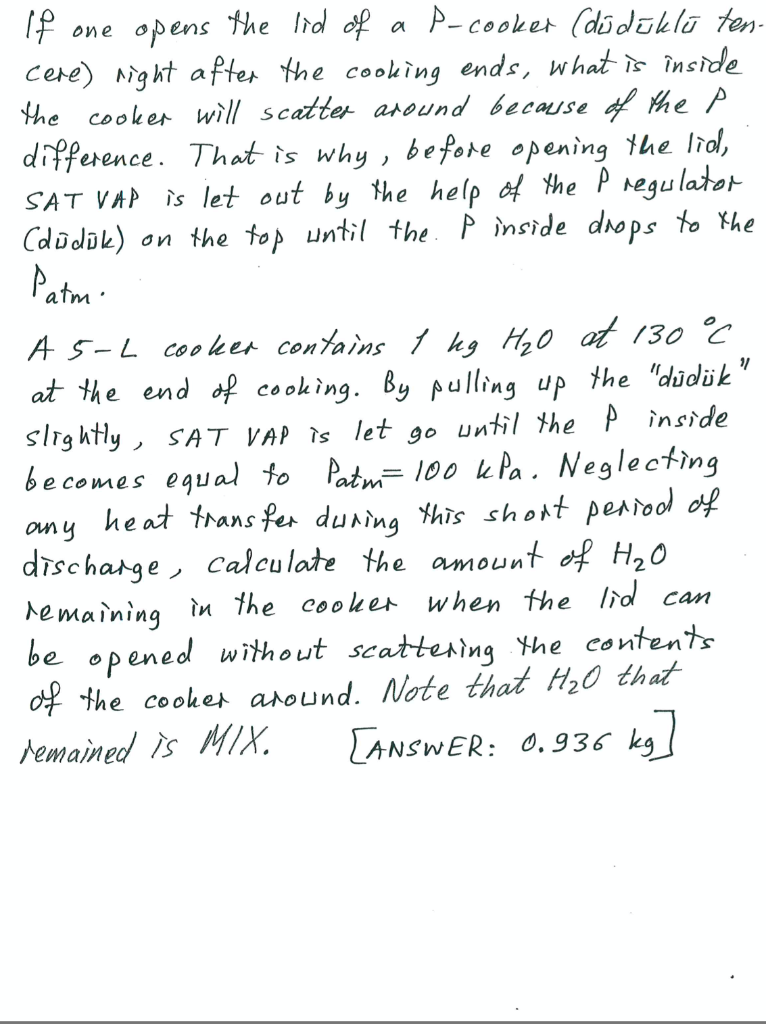 If one opens the lid of a P-cooker (düdüklü ten-
cere) right after the cooking ends, what is inside
the cooker will scatter around because of the P
difference. That is why, before opening the lid,
SAT VAP is let out by the help of the P regulator
(düdük) on the top until the P inside drops to the
Patm.
A 5-L cooker contains 1 kg H2O at 130 °C
at the end of cooking. By pulling up the "düdük"
slightly, SAT VAP is let go until the P inside
becomes equal to Patm= 100 kPa. Neglecting
any heat transfer during this short period of
discharge, calculate the amount of H2O
remaining in the cooker when the lid can
be opened without scattering the contents
of the cooker around. Note that H2O that
remained is MIX. [ANSWER: 0.936 kg]